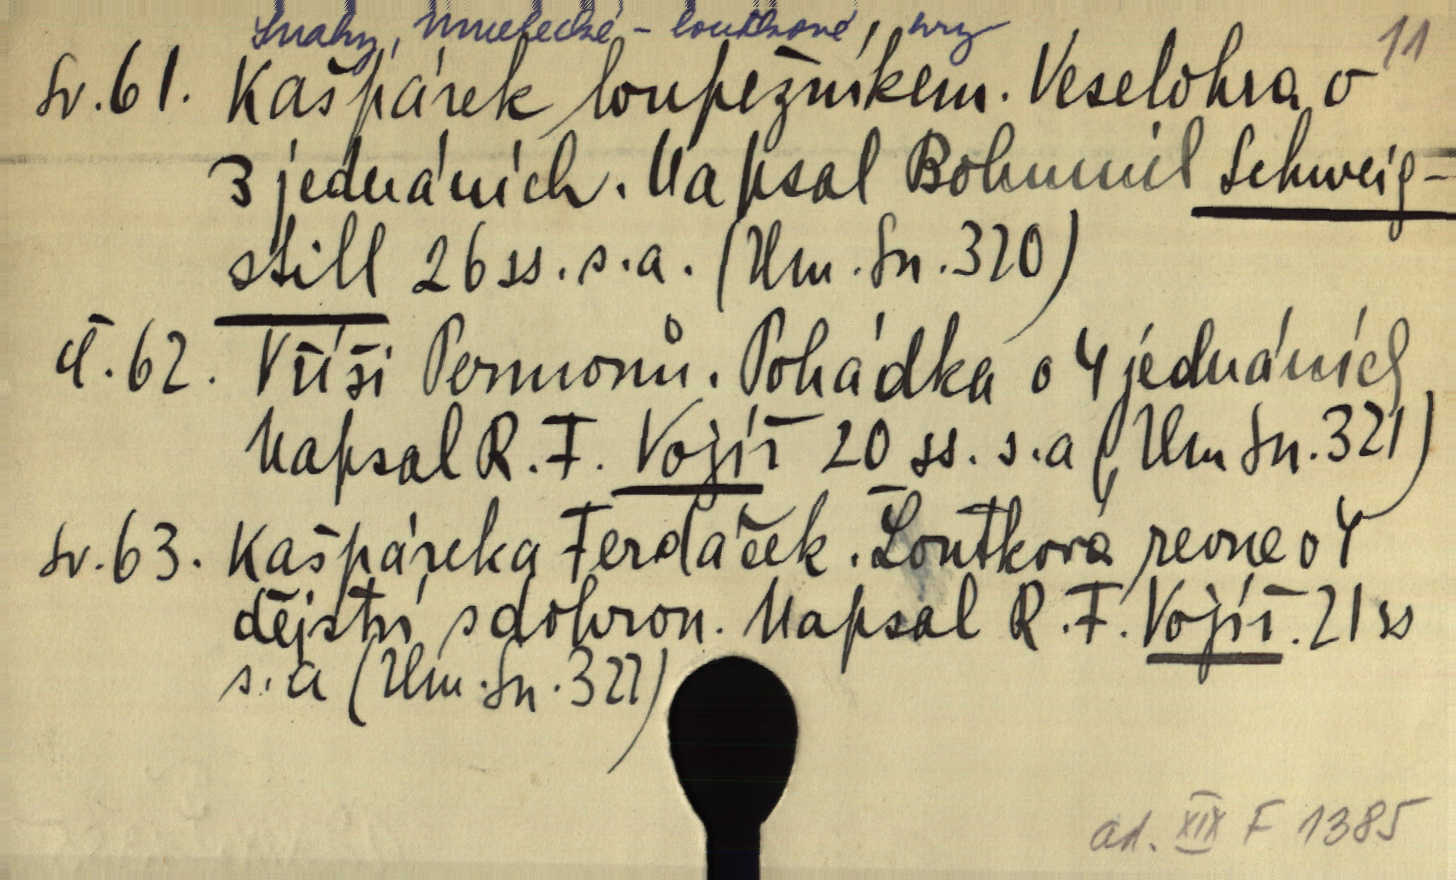 Snahy, Umělecké - loutkové, hry
11
Sv. 61. Kašpárek loupežníkem. Veselohra o
3 jednáních. Napsal Bohumil Schweig-
still 26 ss. s. a. (Um. Sn. 320)
č. 62. V říši Permonů. Pohádka o 4 jednáních
Napsal R. F. Vojíř 20 ss. s. a (Um Sn. 321)
Sv. 63. Kašpárka Ferdáček. Loutková revue o 4
dějství s dohrou. Napsal R. F. Vojíř. 21 ss
s. a (Um. Sn. 322)
ad. XIX F 1385